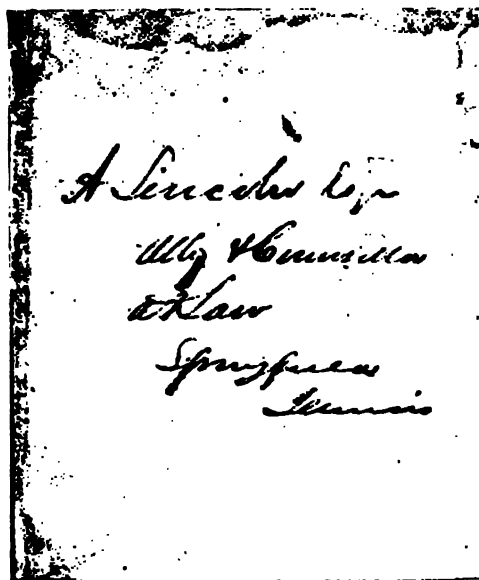 A Lincoln Esqr
Atty & Counsellor
at Law
Springfield
Illinois